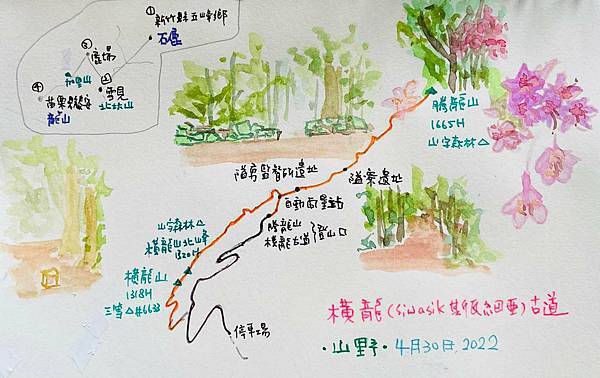 ①
新竹縣五峰鄉
石鹿
②
雪見
北坑山
③
鹿場
加里山
④
苗栗縣泰安
龍山
騰龍山
1665M
山字森林△
隘勇監督所遺址
隘寮遺址
自動雨量站
騰龍山
橫龍古道 登山口
山字森林△
橫龍山北峰
1320M
橫龍山
1318M
三等△#6633
停車場
橫龍(Siwasik 斯瓦細亞)古道
•山野•4月30日,2022